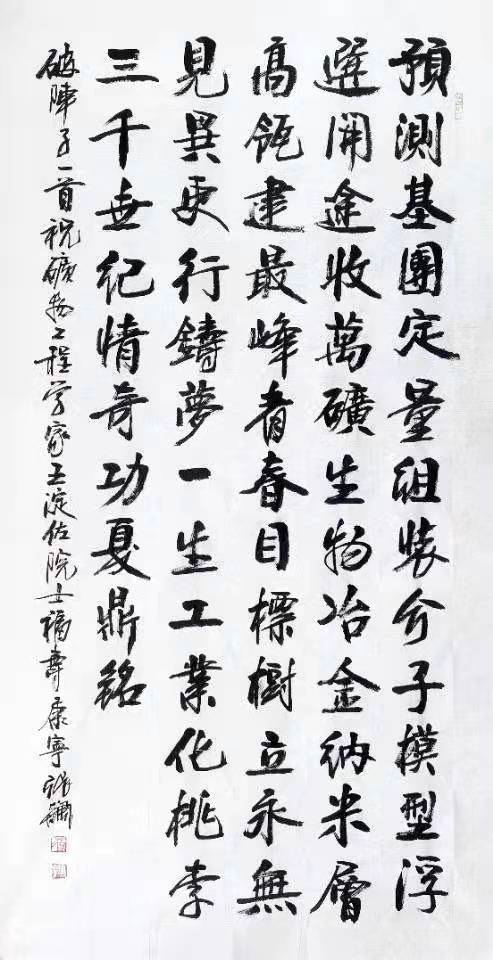 預測基團定量組裝分子模型浮
選開途收萬礦生物冶金納米層
高瓴建最峰青春目標樹立永無
見異更行鑄夢一生工業化桃李
三千世紀情奇功夏鼎銘
破陣子一首祝礦物工程学家王淀佐院士福壽康寧